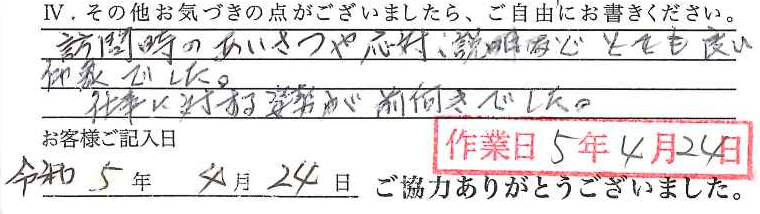 Ⅳ．その他お気づきの点がございましたら、ご自由にお書きください。
訪問時のあいさつや応対、説明などとても良い
印象でした。
仕事に対する姿勢が前向きでした。
お客様ご記入日
作業日 5年4月24日
令和 5 年 4 月 24 日 ご協力ありがとうございました。